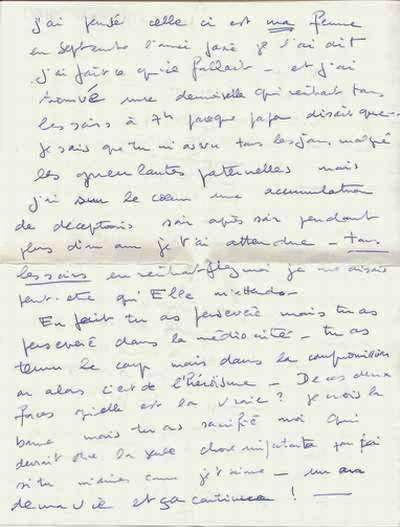 j'ai pensé celle ci est ma femme
en septembre l'année je t'ai dit
j'ai fait ce qu'il fallait - et j'ai
trouvé une demoiselle qui rentrait tous
les soirs à 7h parce que papa disait que --
je sais que tu m'as vu tous les jours malgré
les paternelles mais
j'ai sur le cœur une accumulation
de déceptions soir après soir pendant
plus d'un an je t'ai attendue - tous
les soirs en rentrant chez moi je me disais
peut-etre qu'Elle m'attend -
En fait tu as persévéré mais tu as
persévéré dans la médiocrité - tu as
tenu le coup mais dans la compromission
ou alors c'est de l'héroïsme - De ces deux
faces quelle est la vraie? je crois la
bonne mais tu as sacrifié moi qui
devrait être la seule chose importante pour toi
si tu m'aimes comme je t'aime - un an
de ma vie et ça continue ! -